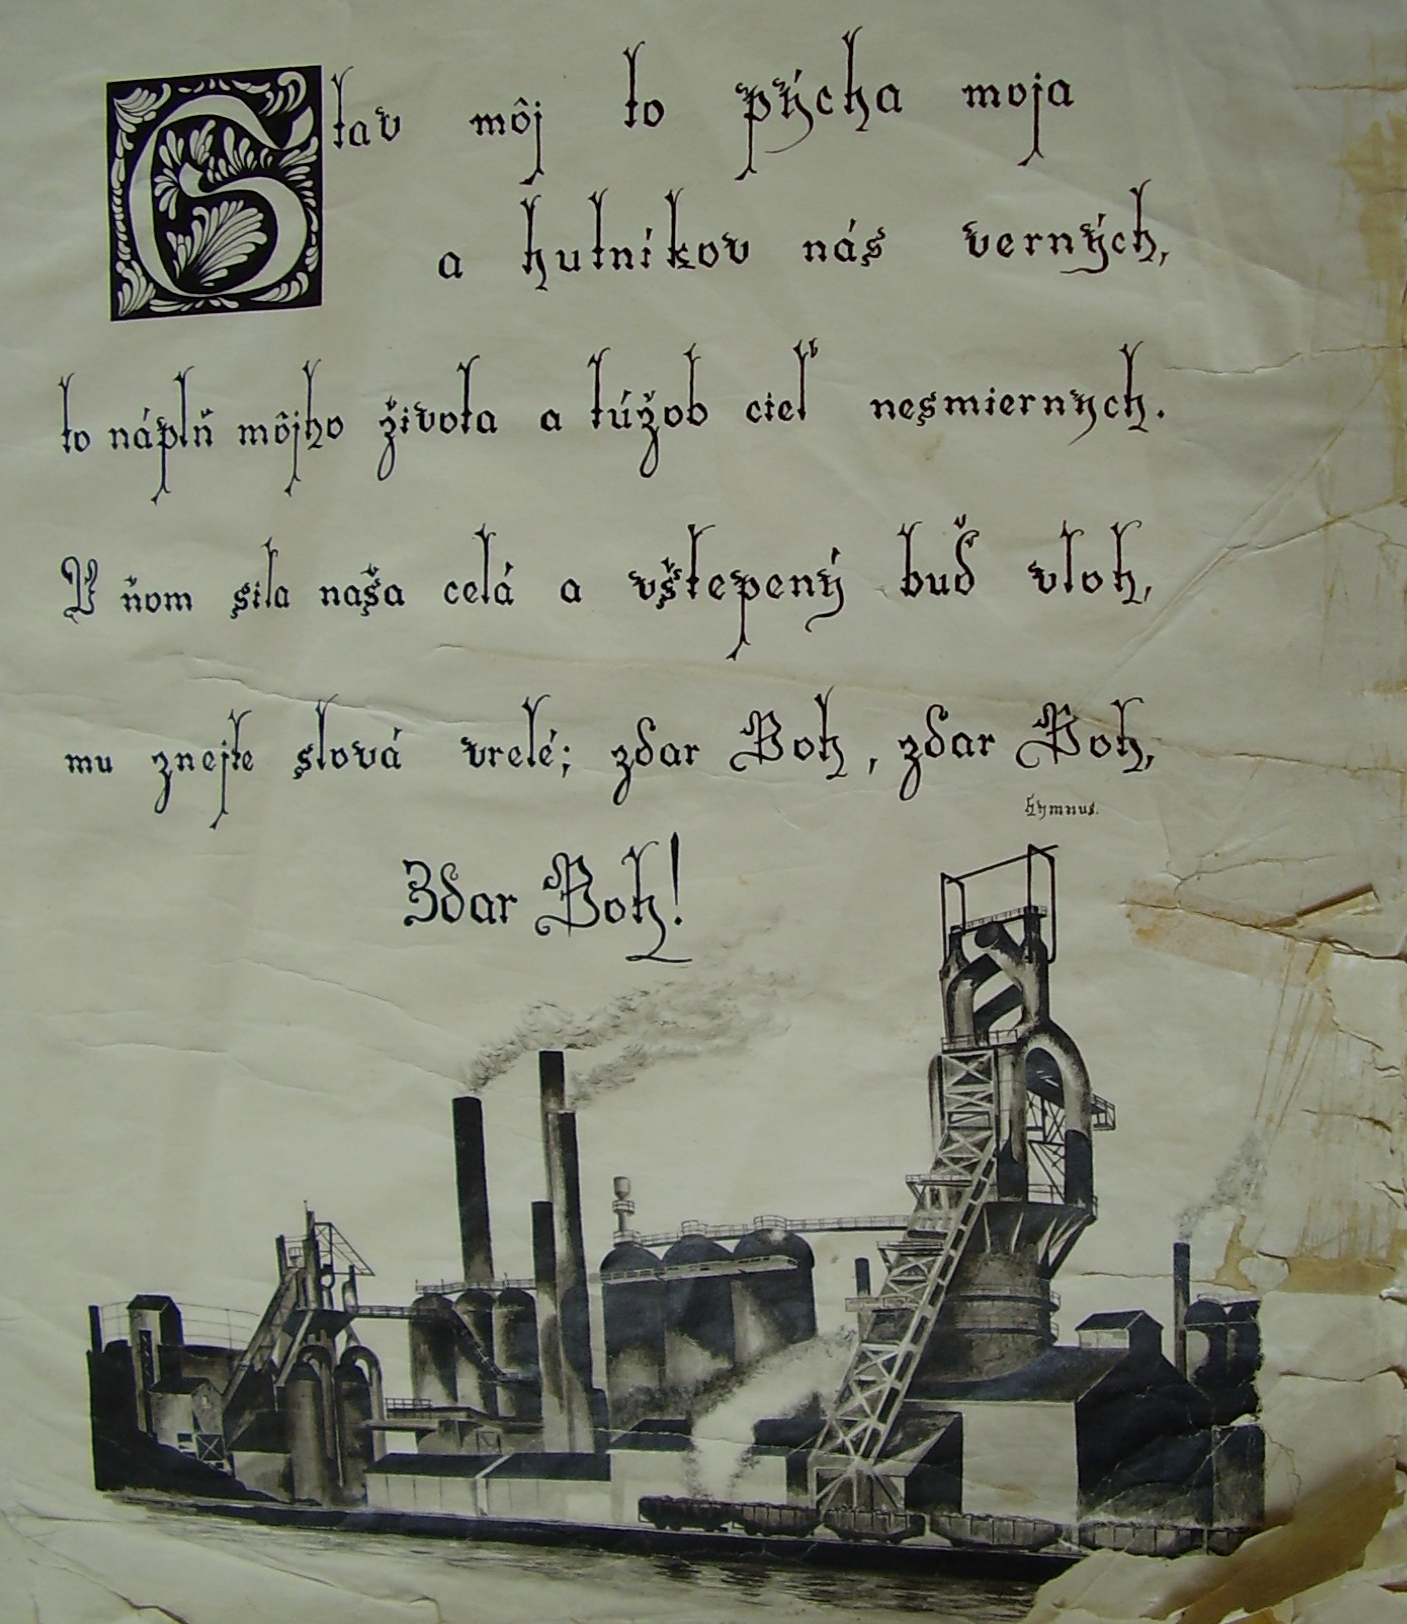 Stav môj to pýcha moja
a hutníkov nás verných,
to náplň môjho života a túžob cieľ nesmiernych.
V ňom sila naša celá a vštepený buď vloh,
mu znejte slová vrelé; zdar Boh, zdar Boh,
Hymnus.
Zdar Boh!